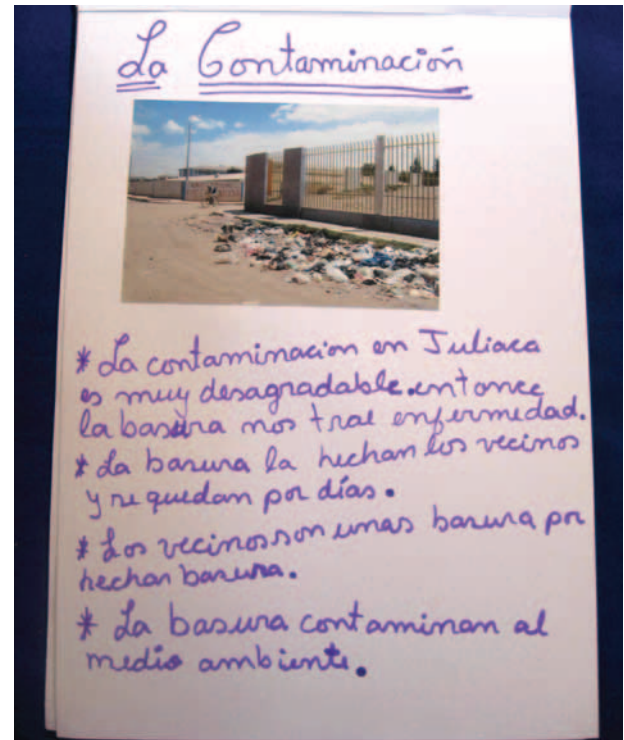 La Contaminación
* La contaminacion en Juliaca
es muy desagradable.entonce
la basura nos trae enfermedad.
* La basura la hechan los vecinos
y se quedan por días.
* Los vecinos son unas basura por
hechan basura.
* La basura contaminan al
medio ambiente.